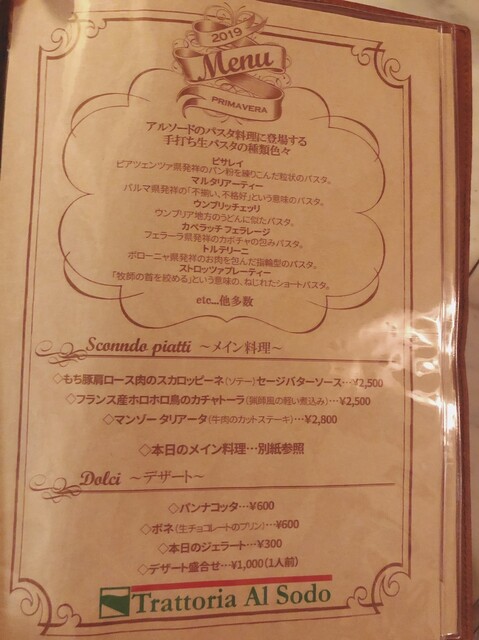 2019
Menu
PRIMAVERA
アルソードのパスタ料理に登場する
手打ち生パスタの種類色々
ピサレイ
ピアツェンツァ県発祥のパン粉を練りこんだ粒状のパスタ。
マルタリアーティー
パルマ県発祥の「不揃い、不格好」という意味のパスタ。
ウンブリッチェッリ
ウンブリア地方のうどんに似たパスタ。
カペラッチ フェラレージ
フェラーラ県発祥のカボチャの包みパスタ。
トルテリーニ
ボローニャ県発祥のお肉を包んだ指輪型のパスタ。
ストロッツァプレーティー
「牧師の首を絞める」という意味の、ねじれたショートパスタ。
etc...他多数
Sconndo piatti ～メイン料理～
◇もち豚肩ロース肉のスカロッピーネ（ソテー）セージバターソース…¥2,500
◇フランス産ホロホロ鳥のカチャトーラ（猟師風の軽い煮込み）…¥2,500
◇マンゾー タリアータ（牛肉のカットステーキ）…¥2,800
◇本日のメイン料理…別紙参照
Dolci ～デザート～
◇パンナコッタ…¥600
◇ボネ（生チョコレートのプリン）…¥600
◇本日のジェラート…¥300
◇デザート盛合せ…¥1,000（1人前）
Trattoria Al Sodo